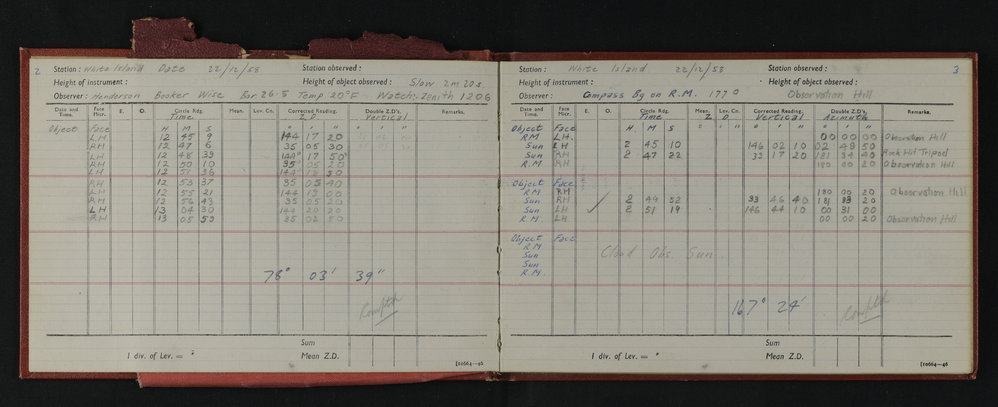 2 Station : White Island Date 22/12/58 Station observed :
Height of instrument : Height of object observed : Slow 2m 20s
Observer : Henderson Booker Wise Bar 26.5 Temp 20°F Watch: Zenith 1206
Date and Time. Face Micr. E. O. Circle Rdg. Time Mean. Lev. Cn. Corrected Reading. Double Z.D's. Vertical Remarks.
Object Face H M S ° ' "
LH 12 45 9 144 17 20
RH 12 47 6 35 05 30
LH 12 48 39 144 17 50
RH 12 50 10 35 05 20
LH 12 51 36 144 18 50
RH 12 53 37 35 05 40
LH 12 55 21 144 19 00
RH 12 56 43 35 05 20
LH 13 04 30 144 20 20
RH 13 05 53 35 02 50
78° 03' 39"
Sum
1 div. of Lev. = " Mean Z.D.
[10664—46
Station : White Island 22/12/58 Station observed : 3
Height of instrument : Height of object observed :
Observer : Compass Bg on R.M. 177° Observation Hill
Date and Time. Face Micr. E. O. Circle Rdg. Time Mean. Z Lev. Cn. D. Corrected Reading. Vertical Double Z.D's. Azimuth Remarks.
Object Face H M S ° ' " ° ' "
RM LH 00 00 00 Observation Hill
Sun LH 2 45 10 146 02 10 02 48 50
Sun RH 2 47 22 33 17 20 181 34 40 Rock Hut Tripod
R.M. RH 180 00 20 Observation Hill
Object Face
R.M RH 180 00 20 Observation Hill
Sun RH 2 49 52 33 46 40 181 33 20
Sun LH 2 51 19 146 44 10 00 31 00
R.M. LH 00 00 20 Observation Hill
Object Face
R.M.
Sun Cloud Obs. Sun.
Sun
R.M.
167° 24'
Sum
1 div. of Lev. = " Mean Z.D.
[10664—46